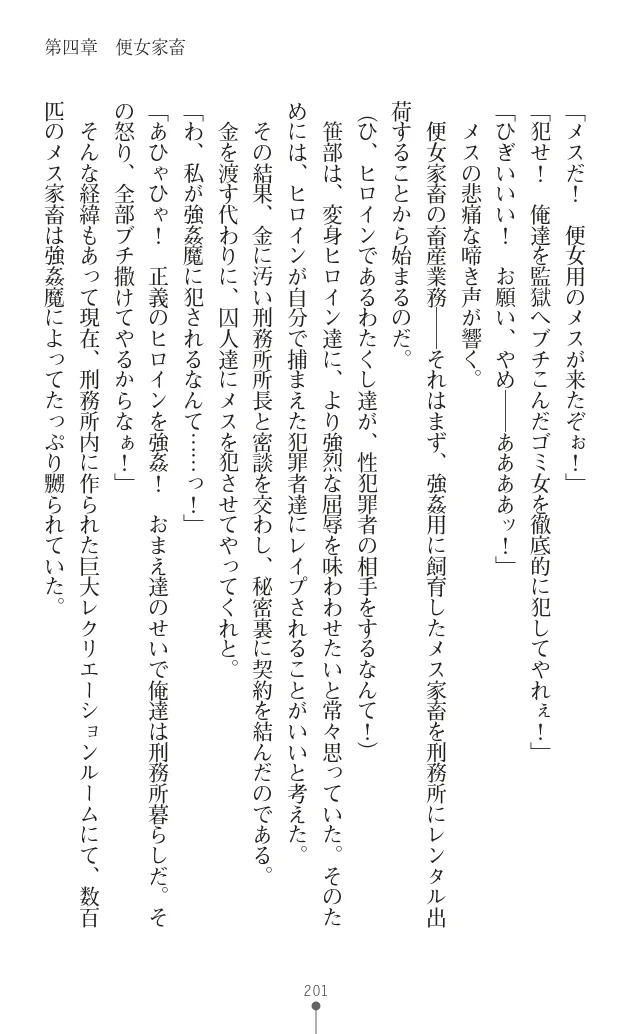 第四章　便女家畜
「メスだ！　便女用のメスが来たぞぉ！」
「犯せ！　俺達を監獄へブチこんだゴミ女を徹底的に犯してやれぇ！」
「ひぎいいい！　お願い、やめ――ああああッ！」
　メスの悲痛な啼き声が響く。
　便女家畜の畜産業務――それはまず、強姦用に飼育したメス家畜を刑務所にレンタル出
荷することから始まるのだ。
（ひ、ヒロインであるわたくし達が、性犯罪者の相手をするなんて！）
　笹部は、変身ヒロイン達に、より強烈な屈辱を味わわせたいと常々思っていた。そのた
めには、ヒロインが自分で捕まえた犯罪者達にレイプされることがいいと考えた。
　その結果、金に汚い刑務所所長と密談を交わし、秘密裏に契約を結んだのである。
　金を渡す代わりに、囚人達にメスを犯させてやってくれと。
「わ、私が強姦魔に犯されるなんて……っ！」
「あひゃひゃ！　正義のヒロインを強姦！　おまえ達のせいで俺達は刑務所暮らしだ。そ
の怒り、全部ブチ撒けてやるからなぁ！」
　そんな経緯もあって現在、刑務所内に作られた巨大レクリエーションルームにて、数百
匹のメス家畜は強姦魔によってたっぷり嬲られていた。
201